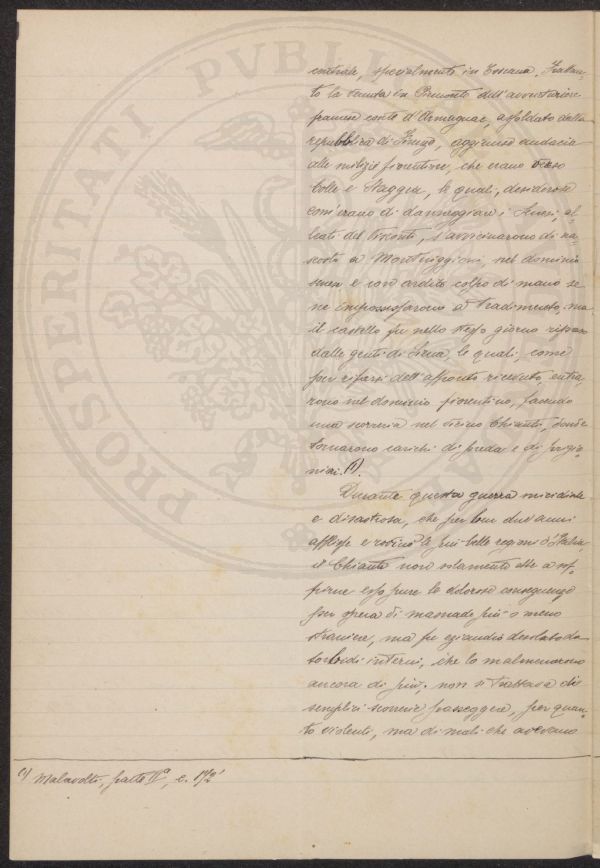 centrale, specialmente in Toscana. Frattan-
to la venuta in Piemonte dell'avventuriere
francese conte d'Armagnac, assoldato dalla
repubblica di Firenze, aggiunse audacia
alle milizie fiorentine, che erano verso
Colle e Staggia, le quali, desiderose
com'erano di danneggiare i Senesi, al-
leati del Visconti, s'avvicinarono di na-
scosto a Monteriggioni, nel dominio
senese e con ardito colpo di mano se
ne impossessarono a tradimento, ma
il castello fu nello stesso giorno ripreso
dalle genti di Siena le quali, come
per rifarsi dell'affronto ricevuto, entra-
rono nel dominio fiorentino, facendo
una scorreria nel vicino Chianti, donde
tornarono carichi di preda e di prigio-
nieri. (1).
Durante questa guerra micidiale
e disastrosa, che per ben due anni
afflisse e rovinò le più belle regioni d'Italia,
il Chianti non solamente ebbe a sof-
frirne esso pure le dolorose conseguenze
per opera di masnade più o meno
straniere, ma fu eziandio desolato da
torbidi interni, che lo malmenarono
ancora di più; non si trattava di
semplici scorrerie passeggere, per quan-
to violenti, ma di mali che avevano
(1) Malavolti, parte IIa, c. 172'
PROSPERITATI PVBLICAE